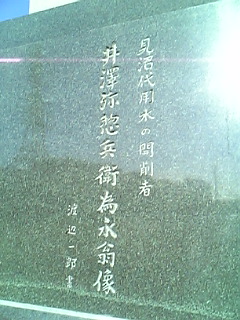 見沼代用水の開削者
井澤弥惣兵衛為永翁像
渡辺一郎書